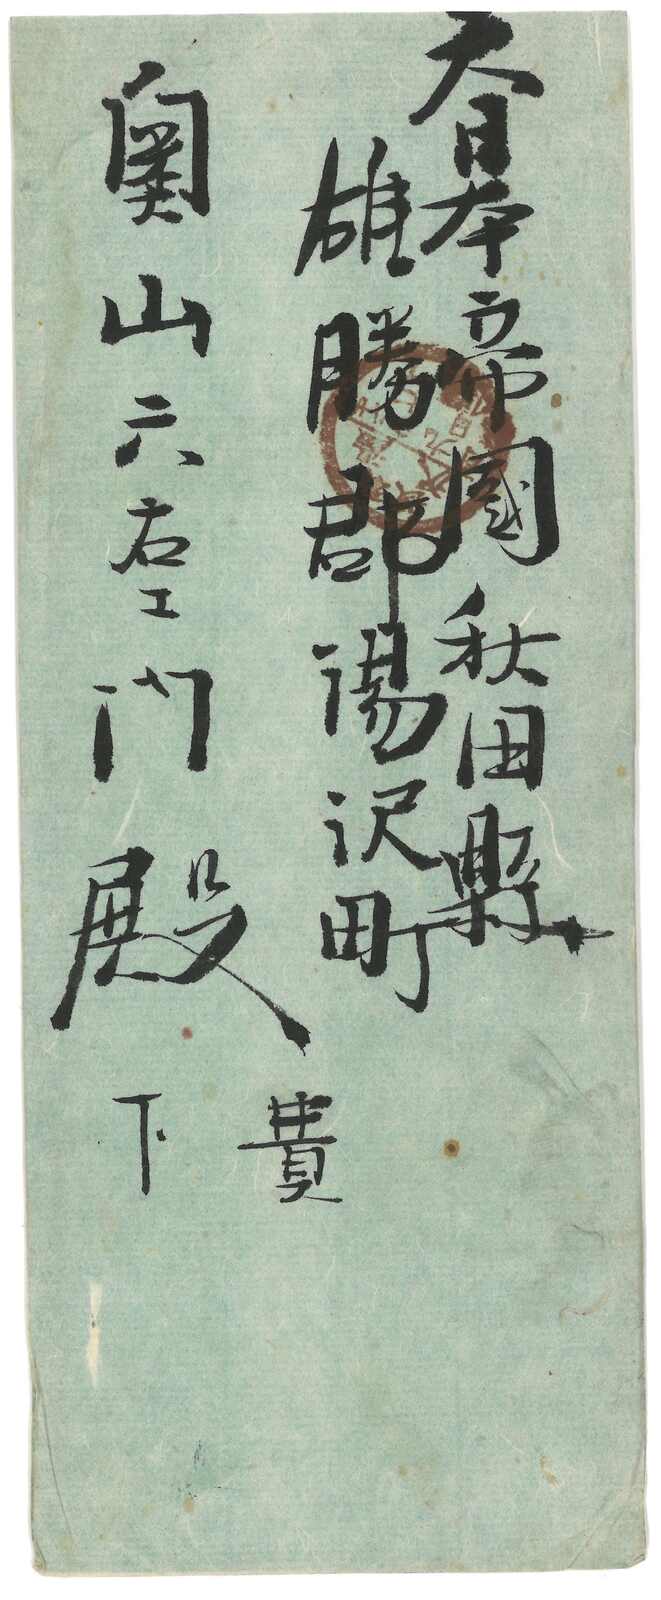 大日本帝國秋田縣
雄勝郡湯沢町
奥山六右エ門殿
貴下